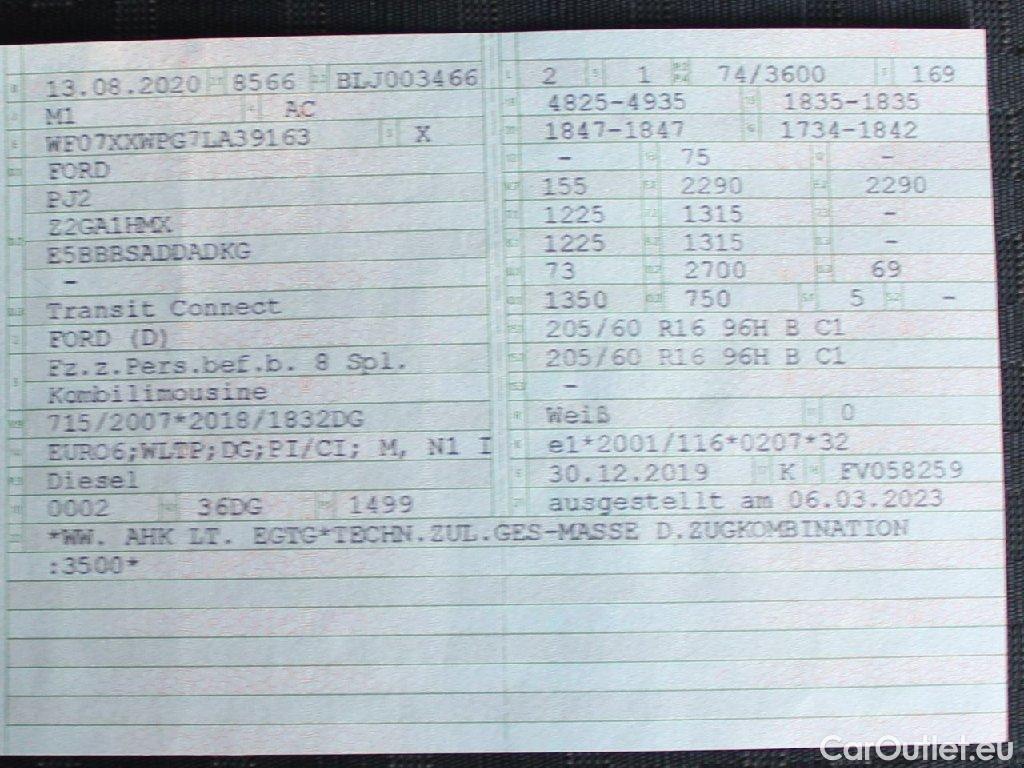 13.08.2020 8566 BLJ003466
M1 AC
WF07XXWPG7LA39163 X
FORD
PJ2
Z2GA1HMX
E5BBBSADDADKG
-
Transit Connect
FORD (D)
Fz.z.Pers.bef.b. 8 Spl.
Kombilimousine
715/2007*2018/1832DG
EURO6;WLTP;DG;PI/CI; M, N1 I
Diesel
0002 36DG 1499
2 1 74/3600 169
4825-4935 1835-1835
1847-1847 1734-1842
- 75 -
155 2290 2290
1225 1315 -
1225 1315 -
73 2700 69
1350 750 5 -
205/60 R16 96H B C1
205/60 R16 96H B C1
-
Weiß 0
e1*2001/116*0207*32
30.12.2019 K FV058259
ausgestellt am 06.03.2023
*WW. AHK LT. EGTG*TECHN.ZUL.GES-MASSE D.ZUGKOMBINATION
:3500*
CarOutlet.eu